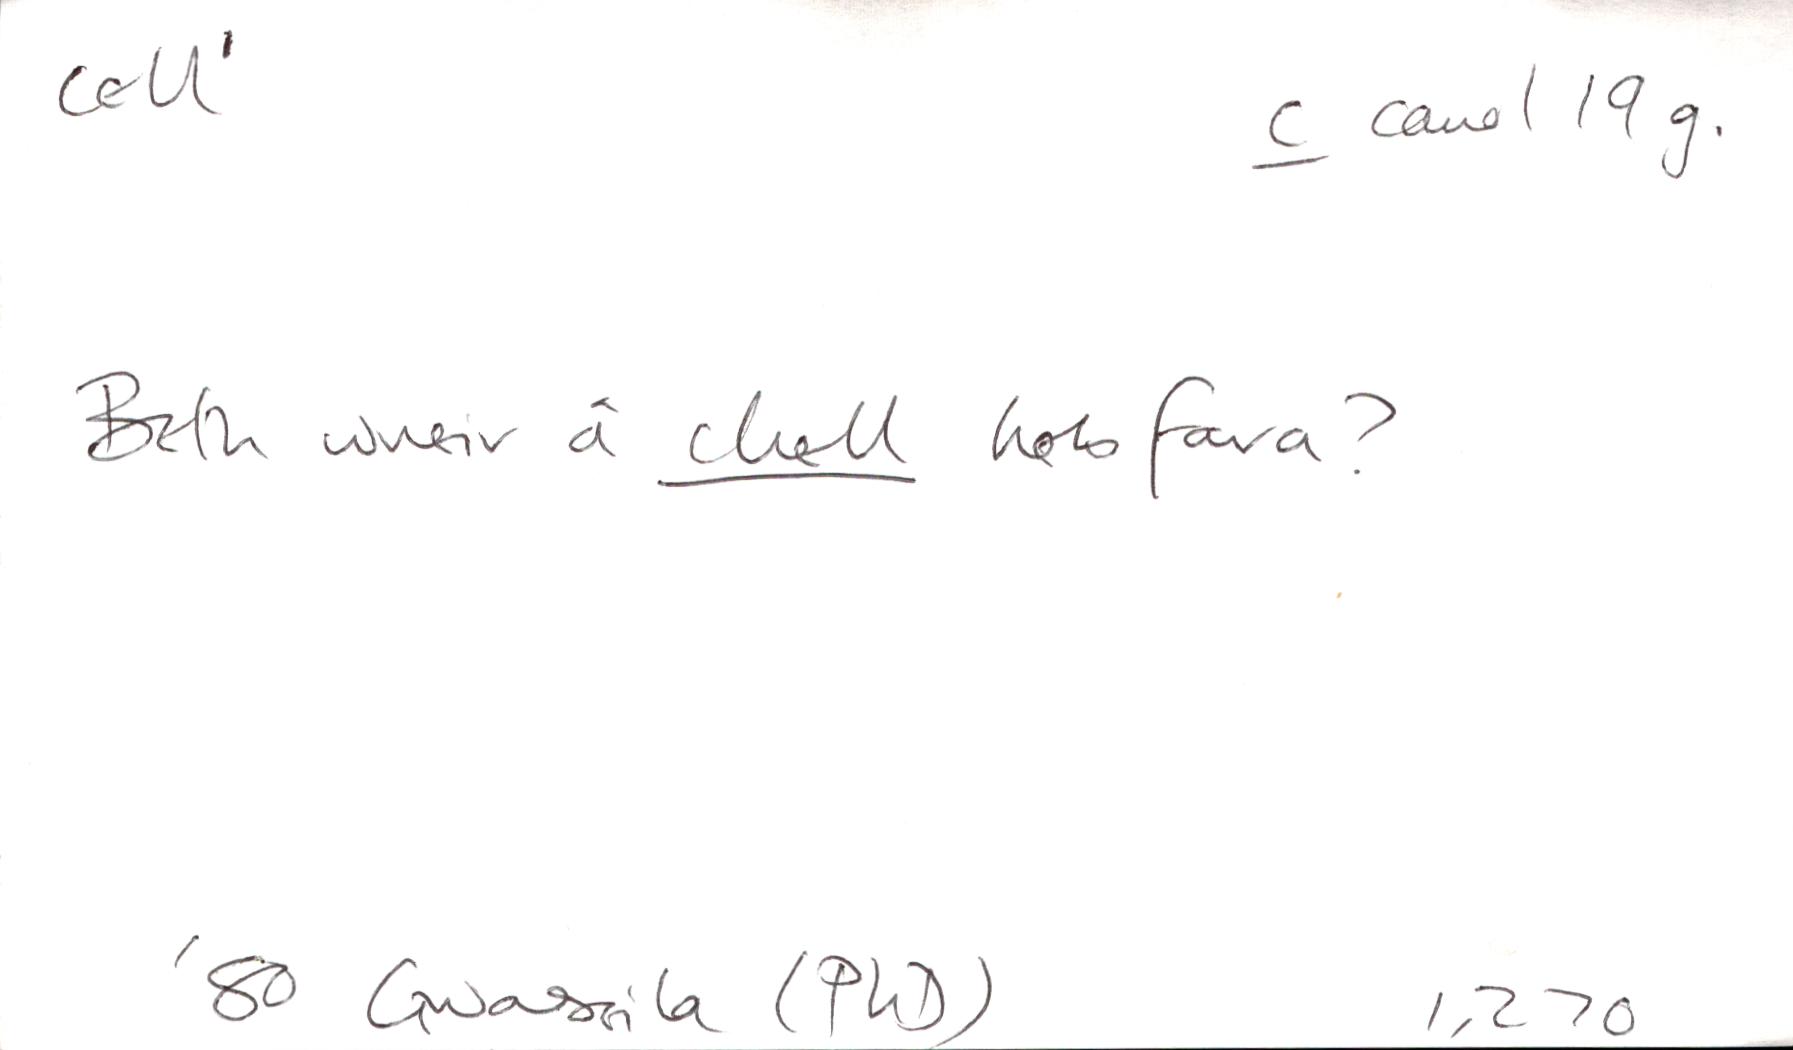 cell¹
c canol 19 g.
Beth wneir â chell hobsfara?
'80 Gwassila (PhD)
1,270